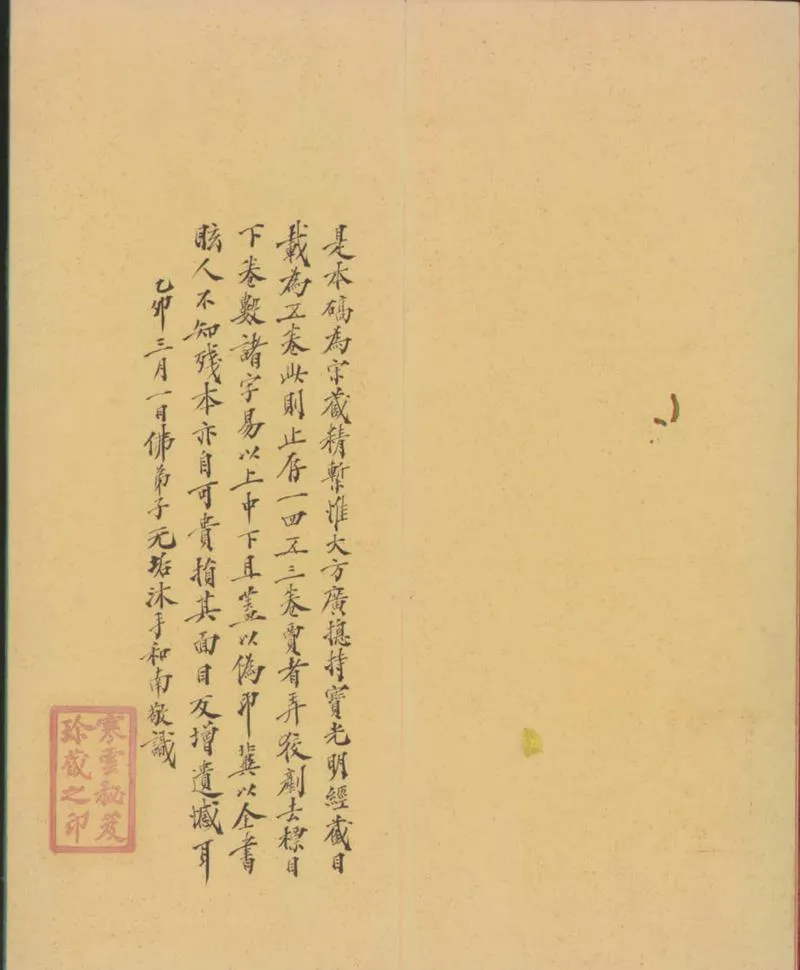 是本礄為宋藏精槧惟大方廣摠持寶光明經藏目
載為五卷此則止存一四五三卷賈者弄狡劇去標目
下卷數諸字易以上中下且蓋以偽印冀以全書
眩人不知殘本亦自可貴損其面目反增遺憾耳
乙卯三月一日佛弟子无垢沐手和南敬識
寒雲秘笈
珍藏之印